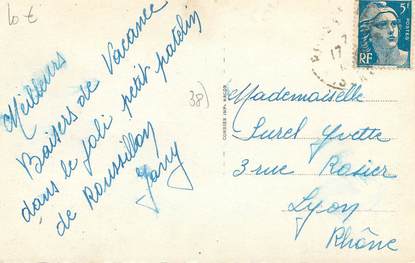 10 €
Meilleurs
Baisers de Vacance
dans le joli petit patelin
de Roussillon
38)
5F
POSTES
RF
17
Mademoiselle
Surel Yvette
3 rue Rosier
Lyon
Rhône